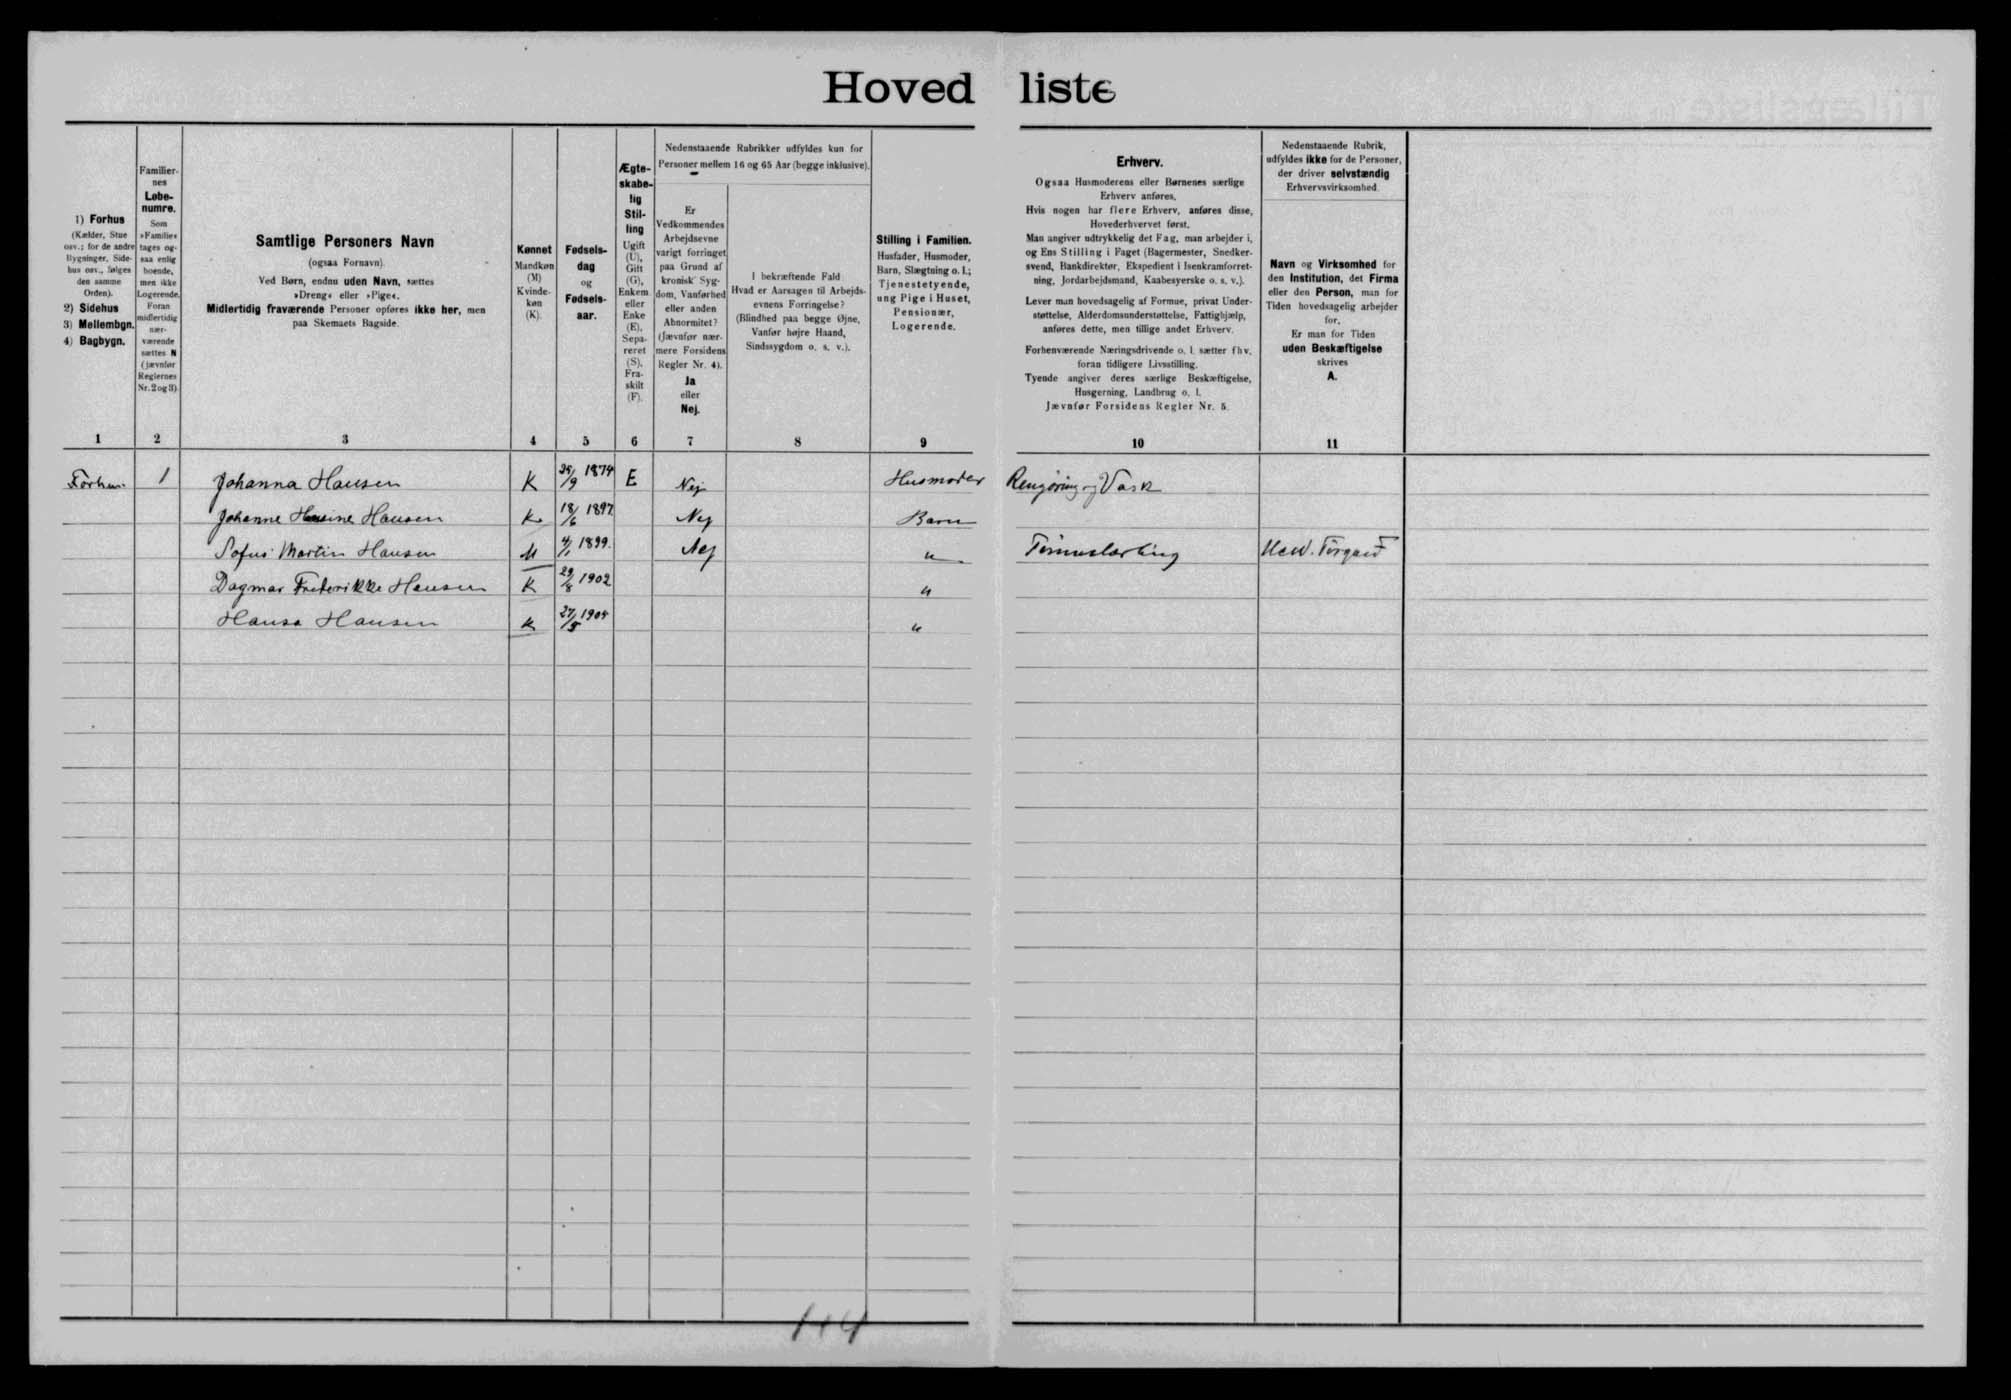 Hovedliste
1) Forhus
(Kælder, Stue
osv.; for de andre
Bygninger, Side-
hus osv., følges
den samme
Orden).
2) Sidehus
3) Mellembgn.
4) Bagbygn.
Familier-
nes
Løbe-
numre.
Som
»Familie«
tages og-
saa enlig
boende,
men ikke
Logerende.
Foran
midlertidig
nær-
værende
sættes N
(jævnfør
Reglernes
Nr. 2 og 3).
Samtlige Personers Navn
(ogsaa Fornavn).
Ved Børn, endnu uden Navn, sættes
»Dreng« eller »Pige«.
Midlertidig fraværende Personer opføres ikke her, men
paa Skemaets Bagside.
Kønnet
Mandkøn
(M)
Kvinde-
køn
(K).
Fødsels-
dag
og
Fødsels-
aar.
Ægte-
skabe-
lig
Stil-
ling
Ugift
(U),
Gift
(G),
Enkem.
eller
Enke
(E),
Sepa-
reret
(S),
Fra-
skilt
(F).
Nedenstaaende Rubrikker udfyldes kun for
Personer mellem 16 og 65 Aar (begge inklusive).
Er
Vedkommendes
Arbejdsevne
varigt forringet
paa Grund af
kronisk Syg-
dom, Vanførhed
eller anden
Abnormitet?
(Jævnfør nær-
mere Forsidens
Regler Nr. 4).
Ja
eller
Nej.
I bekræftende Fald:
Hvad er Aarsagen til Arbejds-
evnens Forringelse?
(Blindhed paa begge Øjne,
Vanfør højre Haand,
Sindssygdom o. s. v.).
Stilling i Familien.
Husfader, Husmoder,
Barn, Slægtning o. l.;
Tjenestetyende,
ung Pige i Huset,
Pensionær,
Logerende.
Erhverv.
Ogsaa Husmoderens eller Børnenes særlige
Erhverv anføres.
Hvis nogen har flere Erhverv, anføres disse,
Hovederhvervet først.
Man angiver udtrykkelig det Fag, man arbejder i,
og Ens Stilling i Faget (Bagermester, Snedker-
svend, Bankdirektør, Ekspedient i Isenkramforret-
ning, Jordarbejdsmand, Kaabesyerske o. s. v.).
Lever man hovedsagelig af Formue, privat Under-
støttelse, Alderdomsunderstøttelse, Fattighjælp,
anføres dette, men tillige andet Erhverv.
Forhenværende Næringsdrivende o. l. sætter fhv.
foran tidligere Livsstilling.
Tyende angiver deres særlige Beskæftigelse,
Husgerning, Landbrug o. l.
Jævnfør Forsidens Regler Nr. 5.
Nedenstaaende Rubrik,
udfyldes ikke for de Personer,
der driver selvstændig
Erhvervsvirksomhed.
Navn og Virksomhed for
den Institution, det Firma
eller den Person, man for
Tiden hovedsagelig arbejder
for.
Er man for Tiden
uden Beskæftigelse
skrives
A.
1 2 3 4 5 6 7 8 9 10 11
Forhus 1 Johanna Hansen K 25/9 1874 E Nej Husmoder Rengøring og Vask
Johanne Hansine Hansen K 18/6 1897 Nej Barn
Sofus Martin Hansen M 4/1 1899. Nej "
Dagmar Frederikke Hansen K 29/8 1902 "
Hansa Hansen K 27/5 1905 "